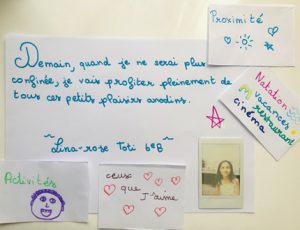 Proximité
Demain, quand je ne serai plus
confinée, je vais profiter pleinement de
tous ces petits plaisirs anodins.
~ Lina-rose Toti 6e8 ~
Natation
vacances
restaurant
cinéma
Activités
ceux
que
J'aime